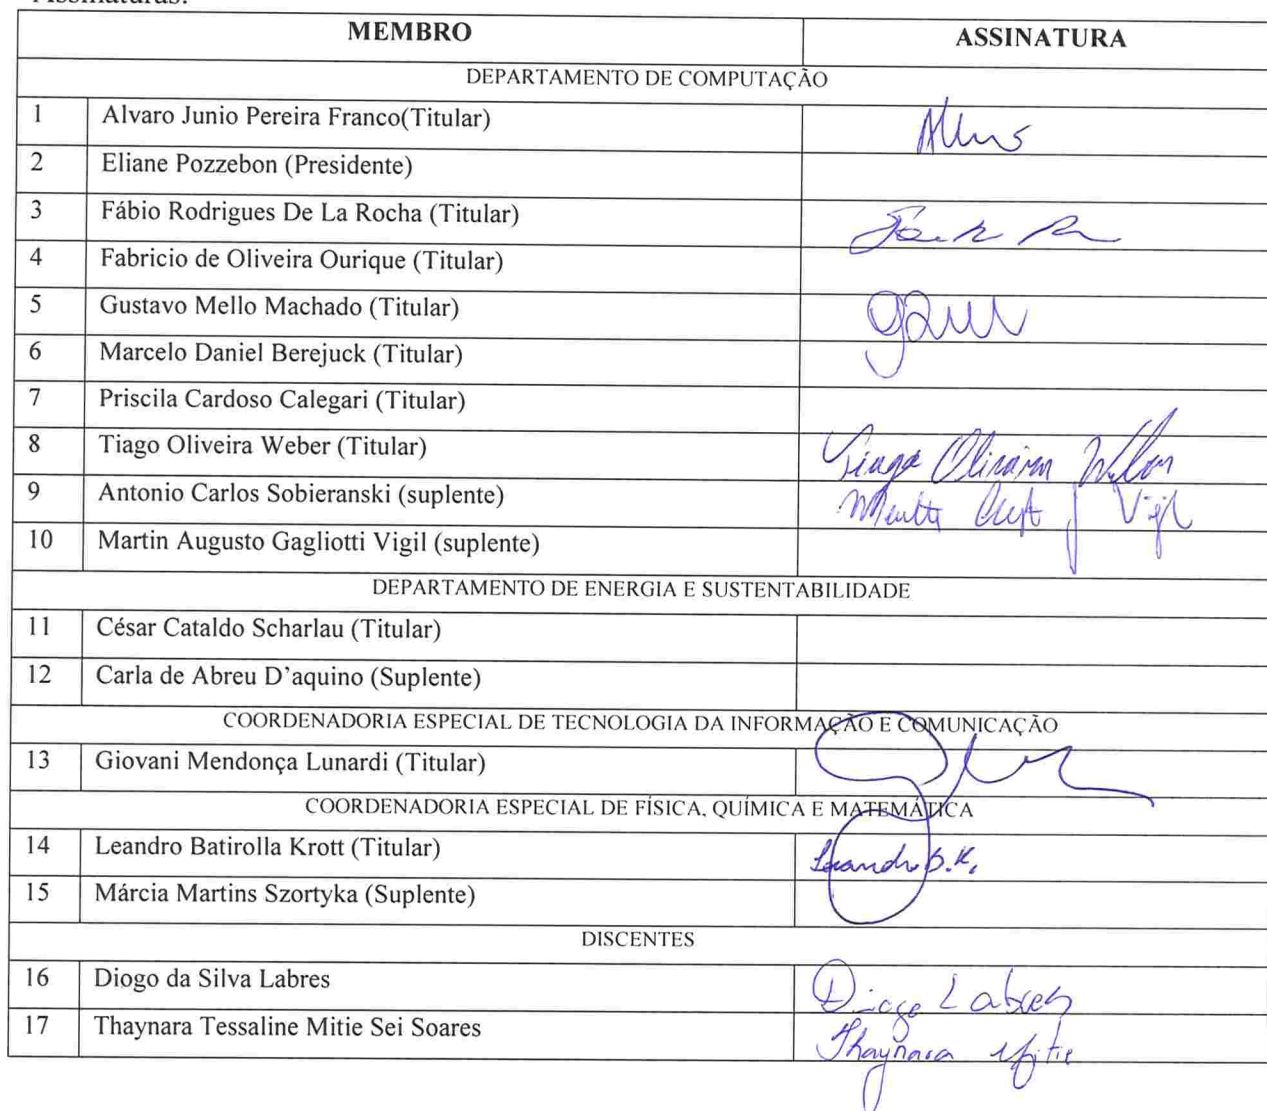 Assinaturas:
MEMBRO ASSINATURA
DEPARTAMENTO DE COMPUTAÇÃO
1 Alvaro Junio Pereira Franco(Titular)
2 Eliane Pozzebon (Presidente)
3 Fábio Rodrigues De La Rocha (Titular)
4 Fabricio de Oliveira Ourique (Titular)
5 Gustavo Mello Machado (Titular)
6 Marcelo Daniel Berejuck (Titular)
7 Priscila Cardoso Calegari (Titular)
8 Tiago Oliveira Weber (Titular) Tiago Oliveira Weber
9 Antonio Carlos Sobieranski (suplente)
10 Martin Augusto Gagliotti Vigil (suplente) Vigil
DEPARTAMENTO DE ENERGIA E SUSTENTABILIDADE
11 César Cataldo Scharlau (Titular)
12 Carla de Abreu D'aquino (Suplente)
COORDENADORIA ESPECIAL DE TECNOLOGIA DA INFORMAÇÃO E COMUNICAÇÃO
13 Giovani Mendonça Lunardi (Titular)
COORDENADORIA ESPECIAL DE FÍSICA, QUÍMICA E MATEMÁTICA
14 Leandro Batirolla Krott (Titular) Leandro B.K.
15 Márcia Martins Szortyka (Suplente)
DISCENTES
16 Diogo da Silva Labres Diogo Labres
17 Thaynara Tessaline Mitie Sei Soares Thaynara Mitie